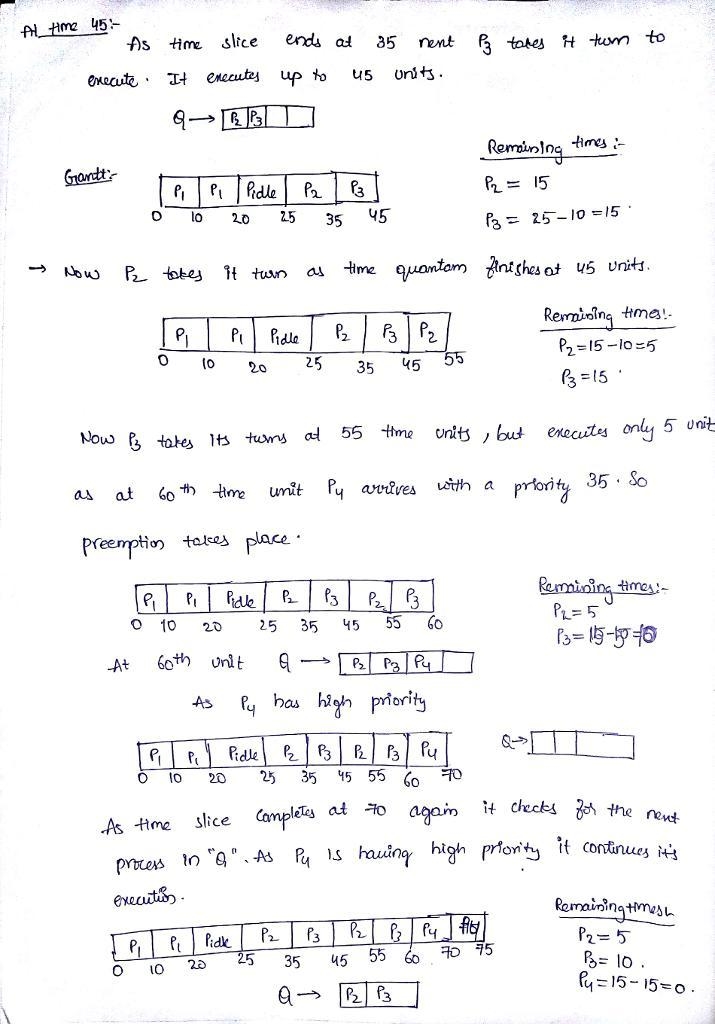 At time 45:-
As time slice ends at 35 next P3 takes it turn to
execute. It executes up to 45 units.
Q → P2 P3
Remaining times:-
Gantt:-
P1 P1 Pidle P2 P3
0 10 20 25 35 45
P2 = 15
P3 = 25-10=15
→ Now P2 takes it turn as time quantam finishes at 45 units.
P1 P1 Pidle P2 P3 P2
0 10 20 25 35 45 55
Remaining times:-
P2=15-10=5
P3=15
Now P3 takes its turns at 55 time units, but executes only 5 unit
as at 60th time unit P4 arrives with a priority 35. So
preemption takes place.
P1 P1 Pidle P2 P3 P2 P3
0 10 20 25 35 45 55 60
Remaining times:-
P2=5
At 60th unit Q → P2 P3 P4
As P4 has high priority
P1 P1 Pidle P2 P3 P2 P3 P4
0 10 20 25 35 45 55 60 70
Q→
As time slice completes at 70 again it checks for the next
process in "Q". As P4 is having high priority it continues it's
execution.
P1 P1 Pidle P2 P3 P2 P3 P4
0 10 20 25 35 45 55 60 70 75
Remaining times
P2=5
P3=10.
P4=15-15=0.
Q → P2 P3